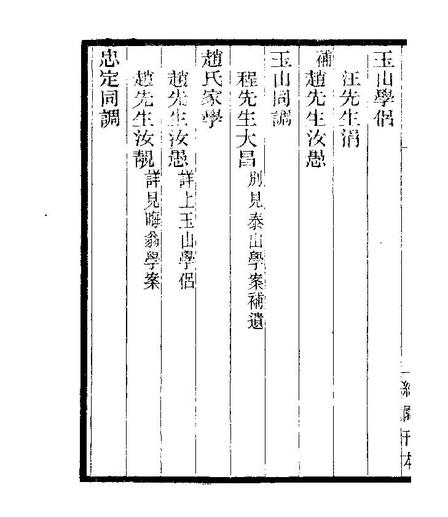 玉山學侶
汪先生涓
補趙先生汝愚
玉山同調
程先生大昌 別見泰山學案補遺
趙氏家學
趙先生汝愚 詳上玉山學侶
趙先生汝靚 詳見晦翁學案
忠定同調
園刊本